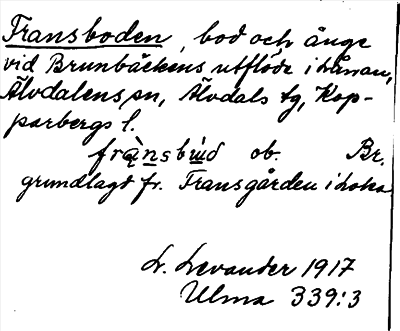 Fransboden, bod och änge
vid Brunbäckens utflöde i Lånan,
Älvdalens sn, Älvdals tg, Kop-
parbergs l.
frànsbùd ob. Br.
grundlagt fr. Fransgården i Loka
L. Levander 1917
Ulma 339:3